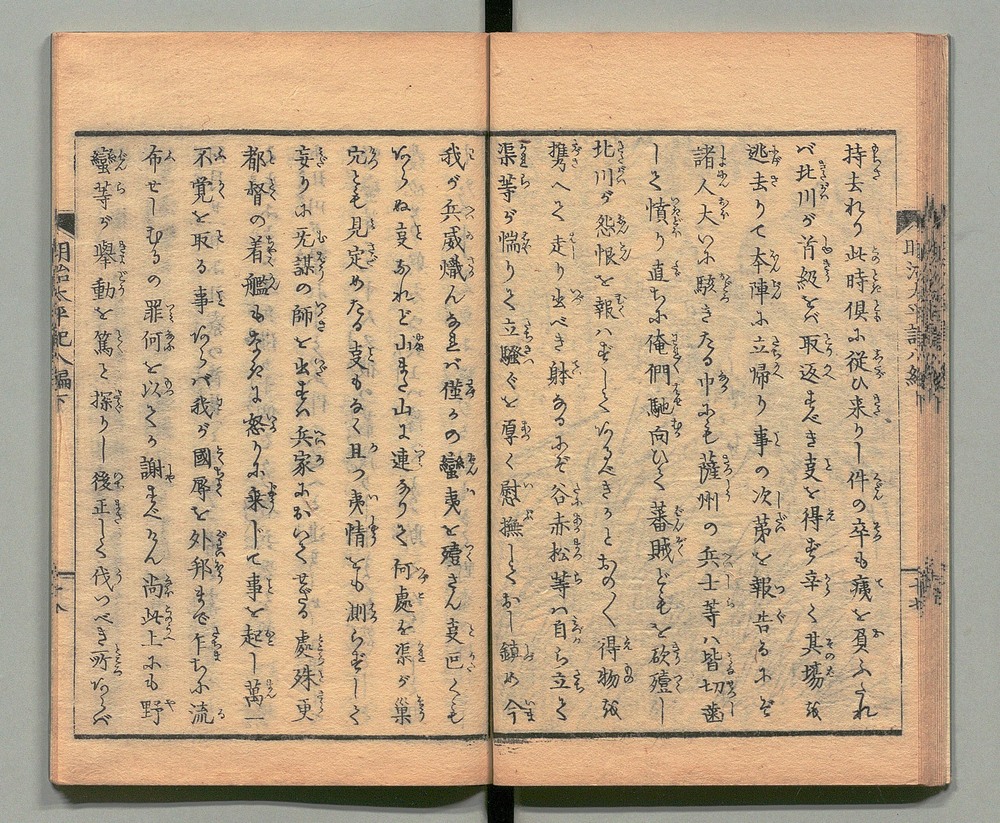 持去れり此時倶に従ひ来りし件の卒も痍を負ふたれ
バ北川が首級をバ取返すべき叓を得ず辛く其場を
逃去りて本陣に立帰り事の次第を報告るにぞ
諸人大いに駭きたる中にも薩州の兵士等ハ皆切歯
して憤り直ちに俺們馳向ひて蕃賊どもを砍殪し
北川が怨恨を報ハずしてあるべきかとおの〳〵得物を
携へて走り出べき躰なるにぞ谷赤松等ハ自ら立て
渠等が惴りて立騒ぐを厚く慰撫しておし鎮め今
我が兵威熾んなれバ僅かの蠻夷を殪さん叓叵くも
あらぬ叓なれど山また山に連なりて何處を渠が巣
穴とも見定めたる叓もなく且つ夷情をも測らずして
妄りに无謀の師を出すハ兵家において甚だ處殊更
都督の着艦もなきに怒りに来じて事を起し萬一
不覚を取る事あらバ我が國辱を外邦まで乍ちに流
布せしむるの罪何を以てか謝すべけん尚此上にも野
蠻等が舉動を篤と探りし後正しく伐つべき所あらバ
明治太平記八編下